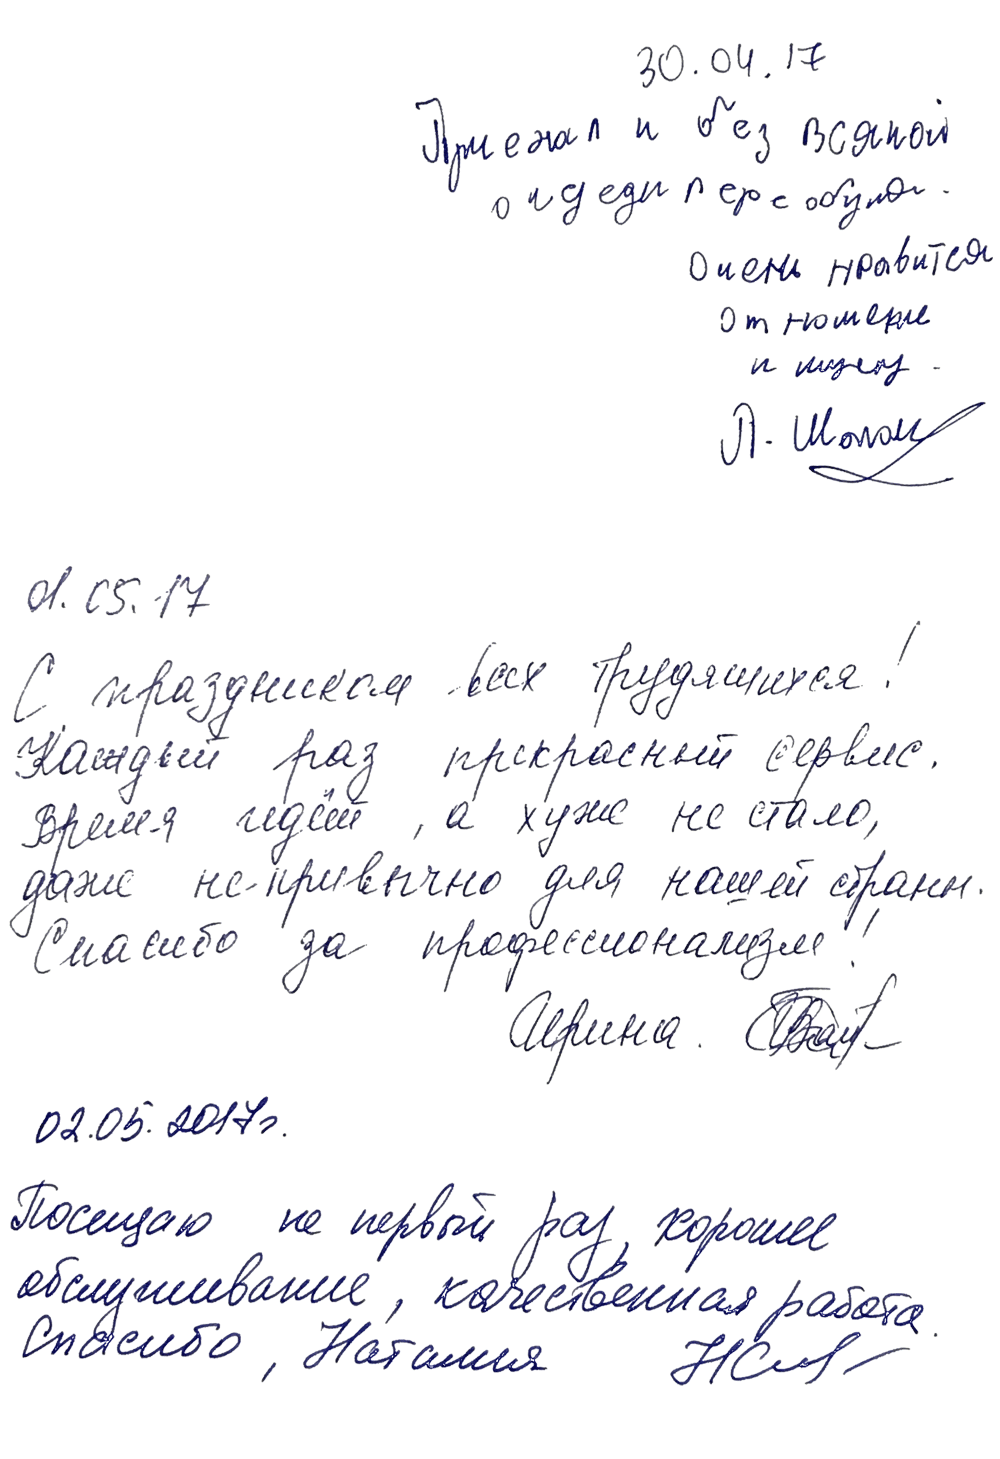 30.04.17
Приехал и без всякой
очереди переобули.
Очень нравится
отношение
и
Л. Шолом
01.05.17
С праздником всех трудящихся!
Каждый раз прекрасный сервис.
Время идёт, а хуже не стало,
даже не-привычно для нашей страны.
Спасибо за профессионализм!
Ирина.
02.05.2017г.
Посещаю не первый раз, хорошее
обслуживание, качественная работа.
Спасибо, Наталия